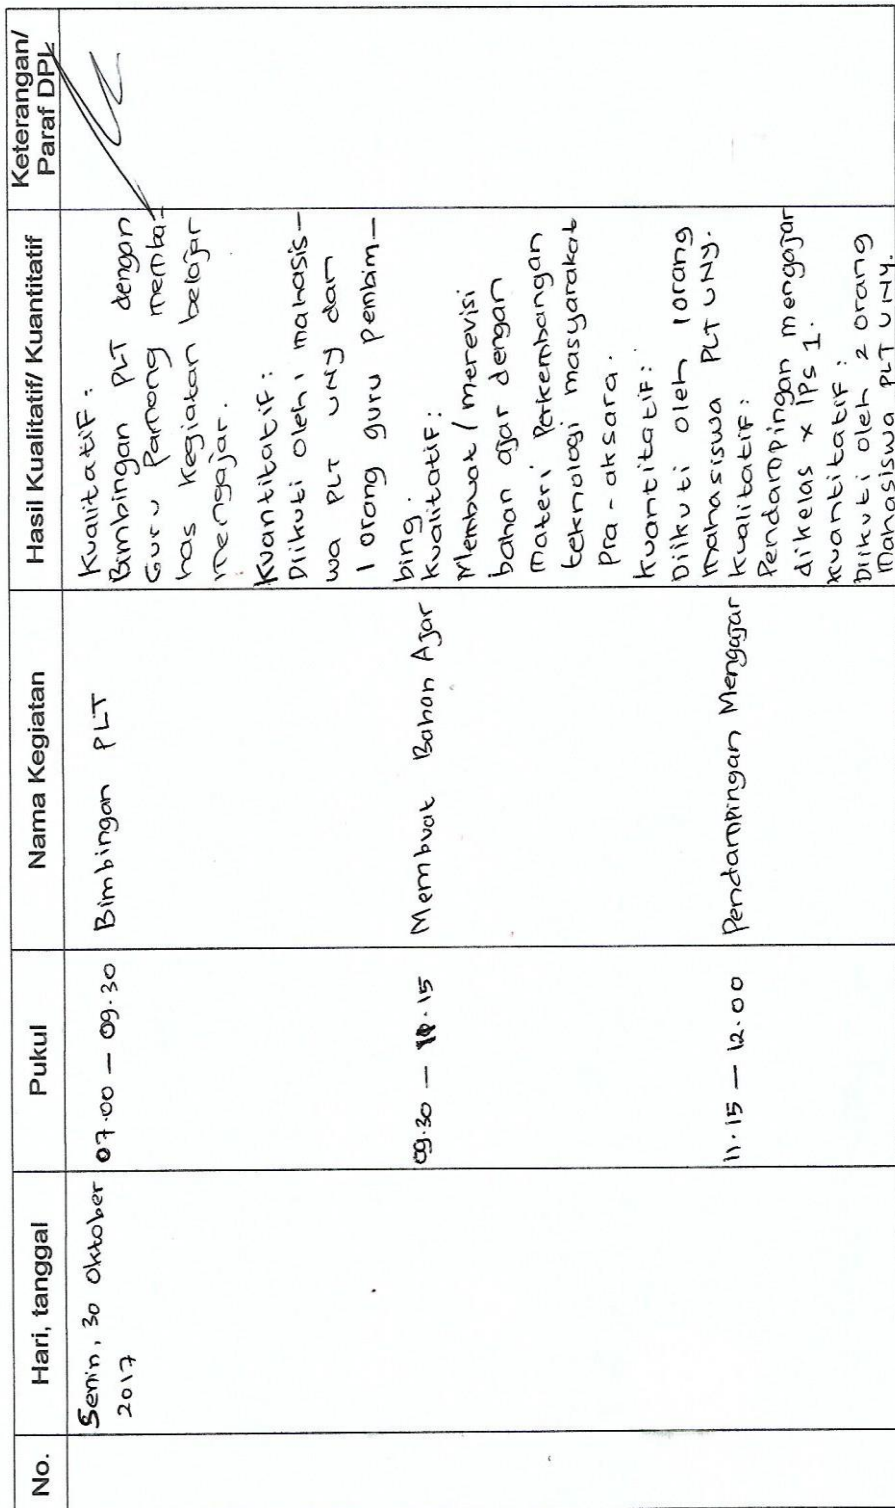 No.
Hari, tanggal
Pukul
Nama Kegiatan
Hasil Kualitatif/ Kuantitatif
Keterangan/
Paraf DPL
Senin, 30 Oktober
2017
07.00 – 09.30
Bimbingan PLT
Kualitatif :
Bimbingan PLT dengan
Guru Pamong memba-
has kegiatan belajar
mengajar.
Kuantitatif :
Diikuti oleh 1 mahasis-
wa PLT UNY dan
1 orang guru pembim-
bing.
09.30 –
Membuat Bahan Ajar
Kualitatif :
Membuat / merevisi
bahan ajar dengan
materi Perkembangan
teknologi masyarakat
Pra-aksara.
Kuantitatif :
Diikuti oleh 1 orang
mahasiswa PLT UNY.
11.15 – 12.00
Pendampingan Mengajar
Kualitatif :
Pendampingan mengajar
dikelas X IPS 1.
Kuantitatif :
Diikuti oleh 2 orang
Mahasiswa PLT UNY.